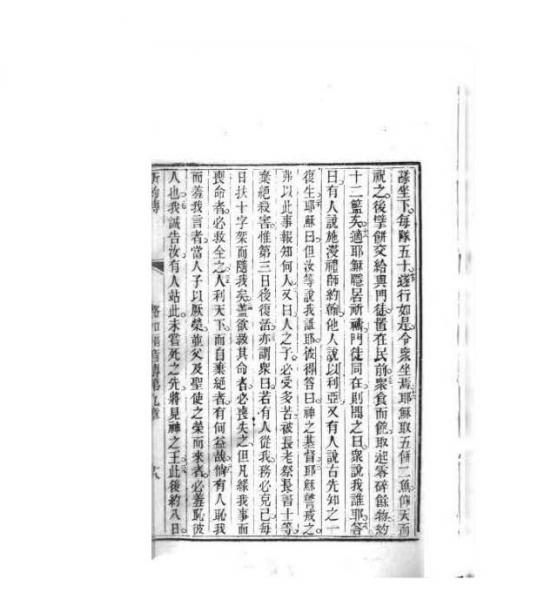 坐下。每隊五十。遂行如是。令衆坐焉。耶穌取五餅二魚仰天而
祝之。後擘餅交給與門徒置在民前。衆食而飽。取起零碎餘物約
十二籃矣。適耶穌隱居所禱。門徒同在。則問之曰。衆說我誰耶。答
曰有人說施浸禮師約翰他人說以利亞又有人說古先知之一
復生耶穌曰但汝等說我誰耶。彼得答曰神之基督耶穌警戒之
弗以此事報知何人。又曰人之子必受多苦被長老祭長書士等
棄絕殺害惟第三日後復活亦謂衆曰若有人從我務必克己每
日扶十字架而隨我矣。蓋欲救其命者必喪失之但凡緣我事而
喪命者必救全之人利天下而自棄絕者有何益哉倘有人恥我
而羞我言者當人子以厥榮並父及聖使之榮而來者必羞恥彼
人也我誠告汝有人站此未嘗死之先將見神之王此後約八日
路加福音傳第九章